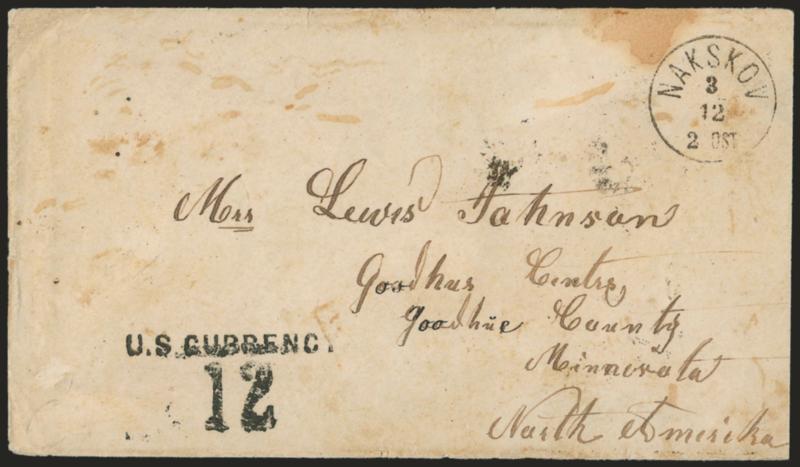 NAKSKOV
3
12
2 POST
Mrs Lewis Johnson
Goodhue Centre,
Goodhue County
Minnesota
North Amerika
U.S. CURRENCY
12